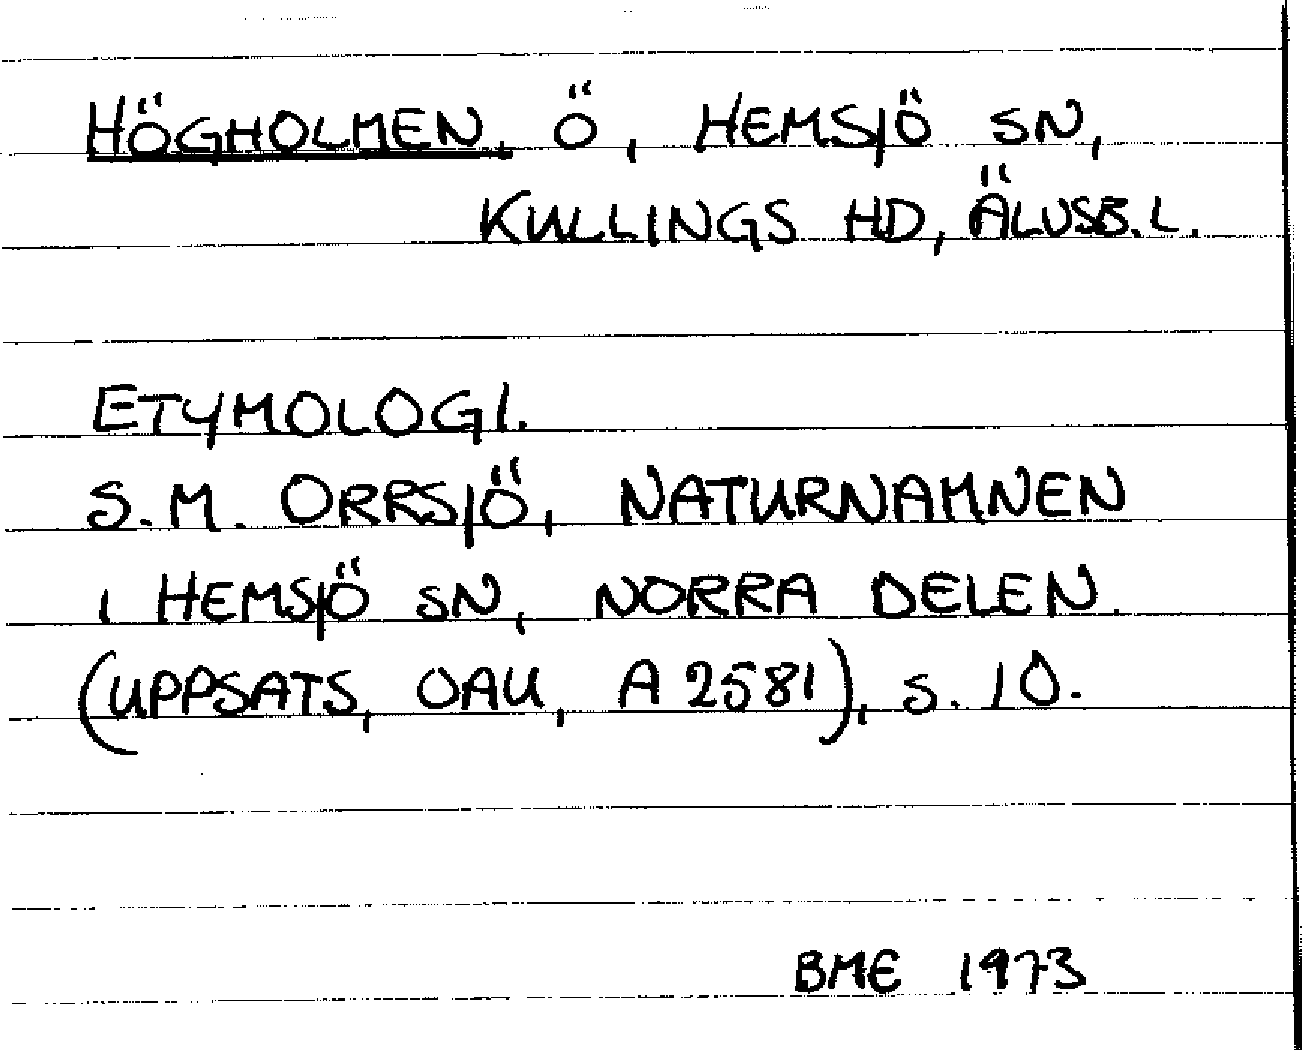 HÖGHOLMEN, Ö, HEMSJÖ SN,
KULLINGS HD, ÄLVSB. L.
ETYMOLOGI.
S.M. ORRSJÖ, NATURNAMNEN
I HEMSJÖ SN, NORRA DELEN.
(UPPSATS, OAU, A 2581), S. 10.
BME 1973